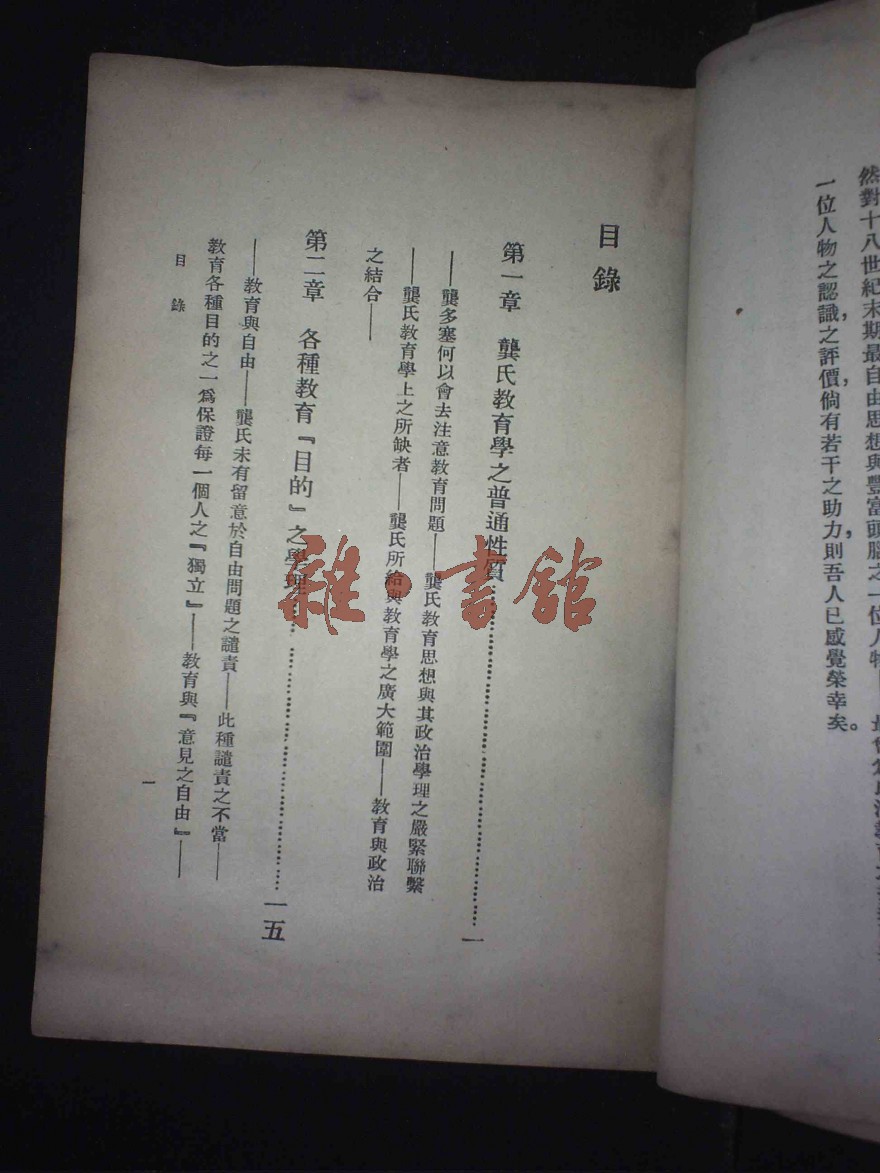 然對十八世紀末期最自由思想與豐富頭腦之一位人物
一位人物之認識之評價，倘有若干之助力，則吾人已感覺榮幸矣。
目錄
第一章　龔氏教育學之普通性質……一
——龔多塞何以會去注意教育問題——龔氏教育思想與其政治學理之嚴緊聯繫
——龔氏教育學上之所缺者——龔氏所給與教育學之廣大範圍——教育與政治
之結合——
第二章　各種教育『目的』之學理……一五
——教育與自由——龔氏未有留意於自由問題之譴責——此種譴責之不當——
教育各種目的之一爲保證每一個人之『獨立』——教育與『意見之自由』——
目錄
一
雜·書館